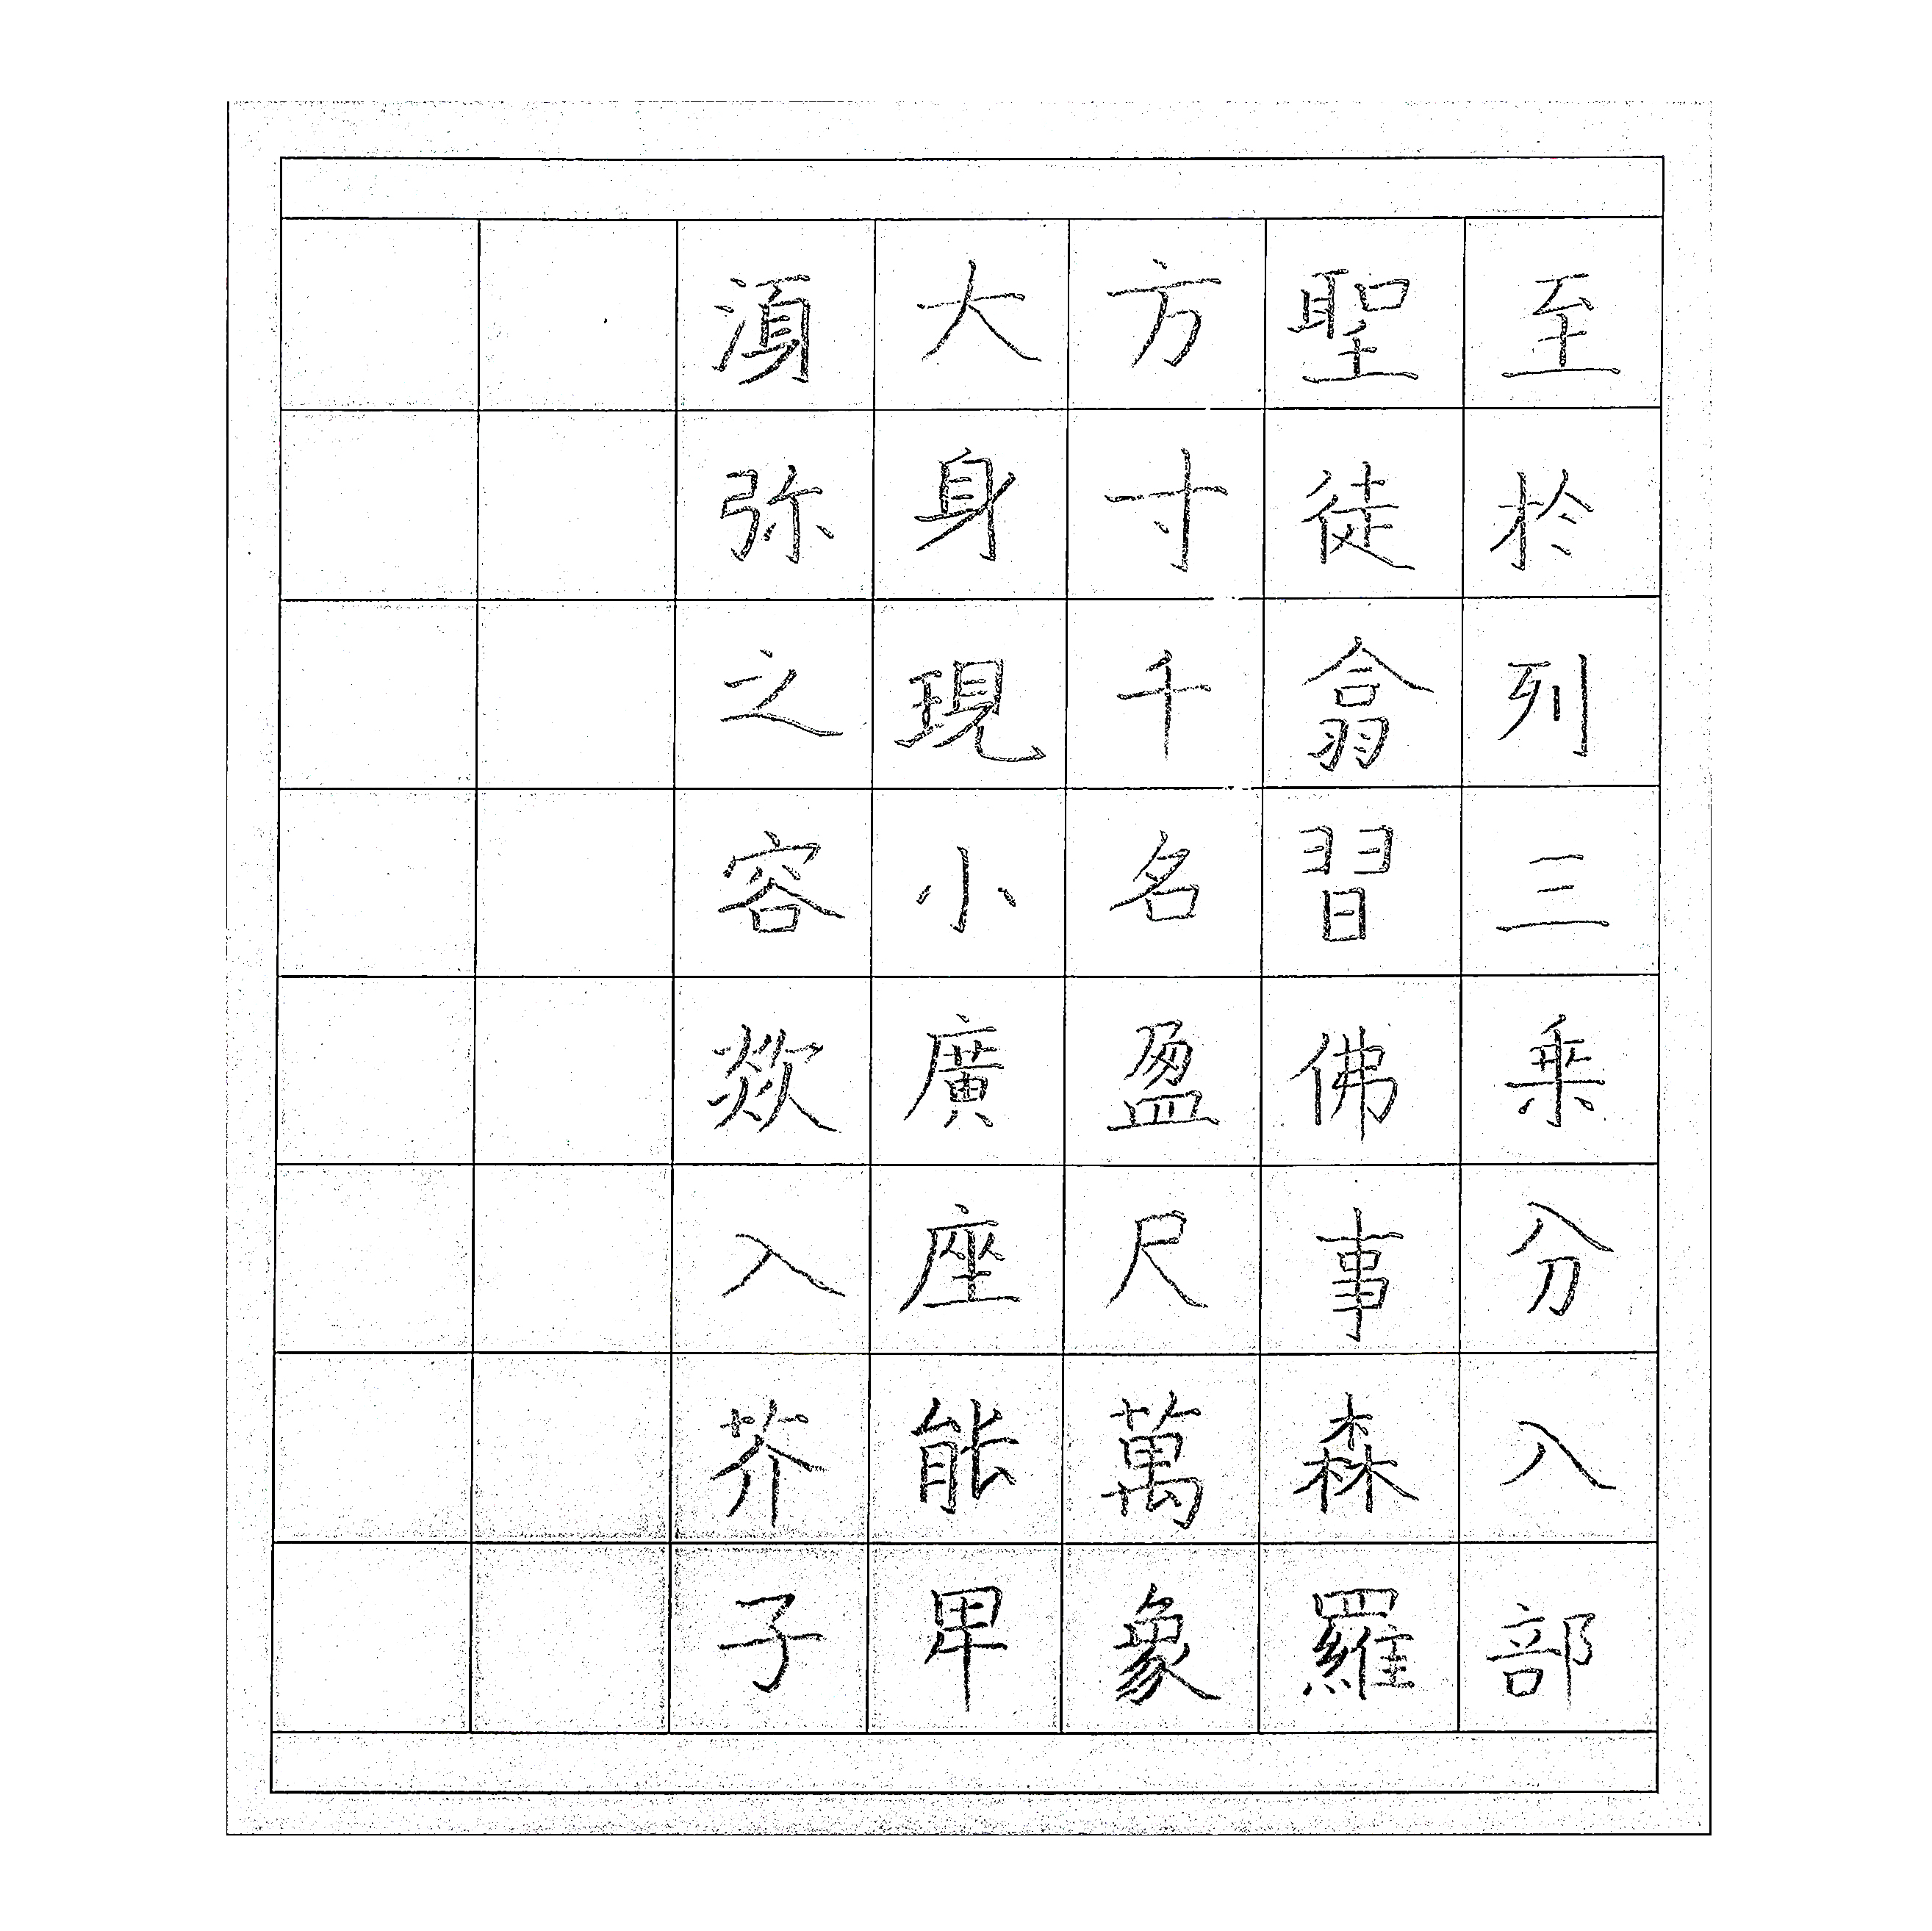 至於列三乗分入部
聖徒翕習佛事森羅
方寸千名盈尺萬象
大身現小廣座能卑
湏弥之容欻入芥子